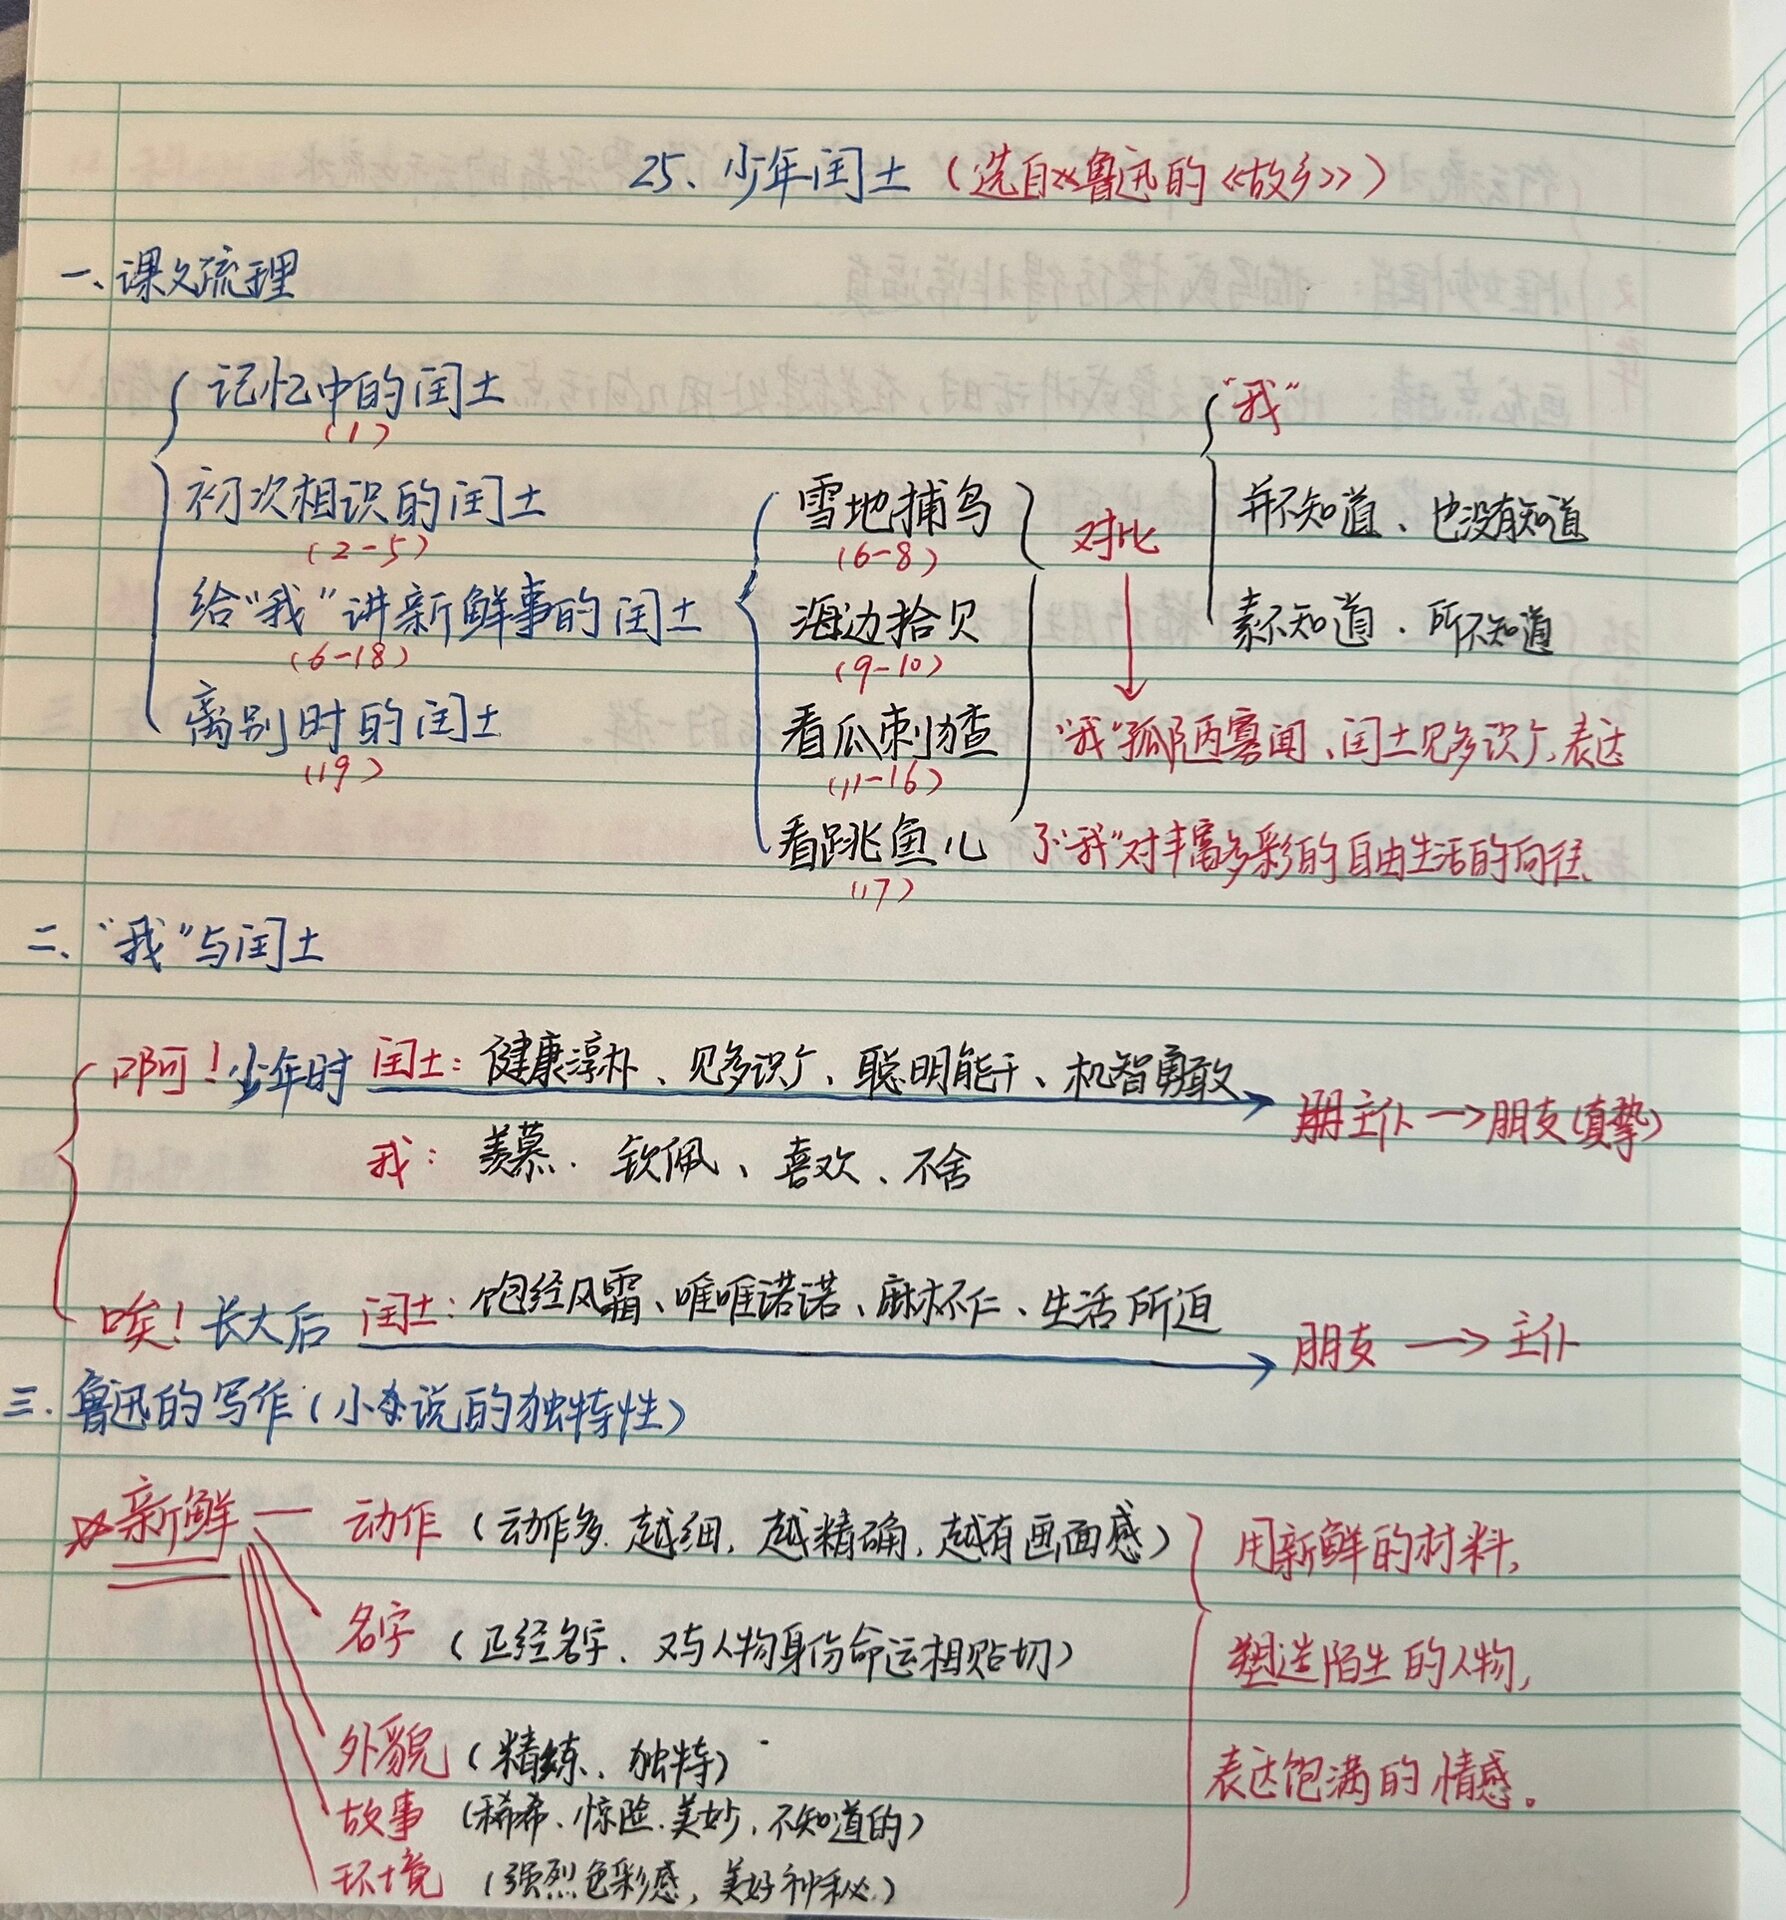 25、少年闰土（选自鲁迅的《故乡》）
一、课文梳理
记忆中的闰土
（1）
初次相识的闰土
（2-5）
给“我”讲新鲜事的闰土
（6-18）
离别时的闰土
（19）
雪地捕鸟
（6-8）
海边拾贝
（9-10）
看瓜刺猹
（11-16）
看跳鱼儿
（17）
对比
“我”
并不知道、也没有知道
素不知道、所不知道
“我”孤陋寡闻、闰土见多识广，表达
了“我”对丰富多彩的自由生活的向往、
二、“我”与闰土
啊！少年时 闰土：健康淳朴、见多识广、聪明能干、机智勇敢 主仆→朋友（真挚）
我：羡慕、钦佩、喜欢、不舍
唉！长大后 闰土：饱经风霜、唯唯诺诺、麻木不仁、生活所迫 朋友→主仆
三、鲁迅的写作（小说的独特性）
新鲜 — 动作（动作多、越细，越精确，越有画面感）
名字（正经名字、又与人物身份命运相贴切）
外貌（精练、独特）
故事（稀奇、惊险、美妙、不知道的）
环境（强烈色彩感，美好神秘）
用新鲜的材料，
塑造陌生的人物，
表达饱满的情感。